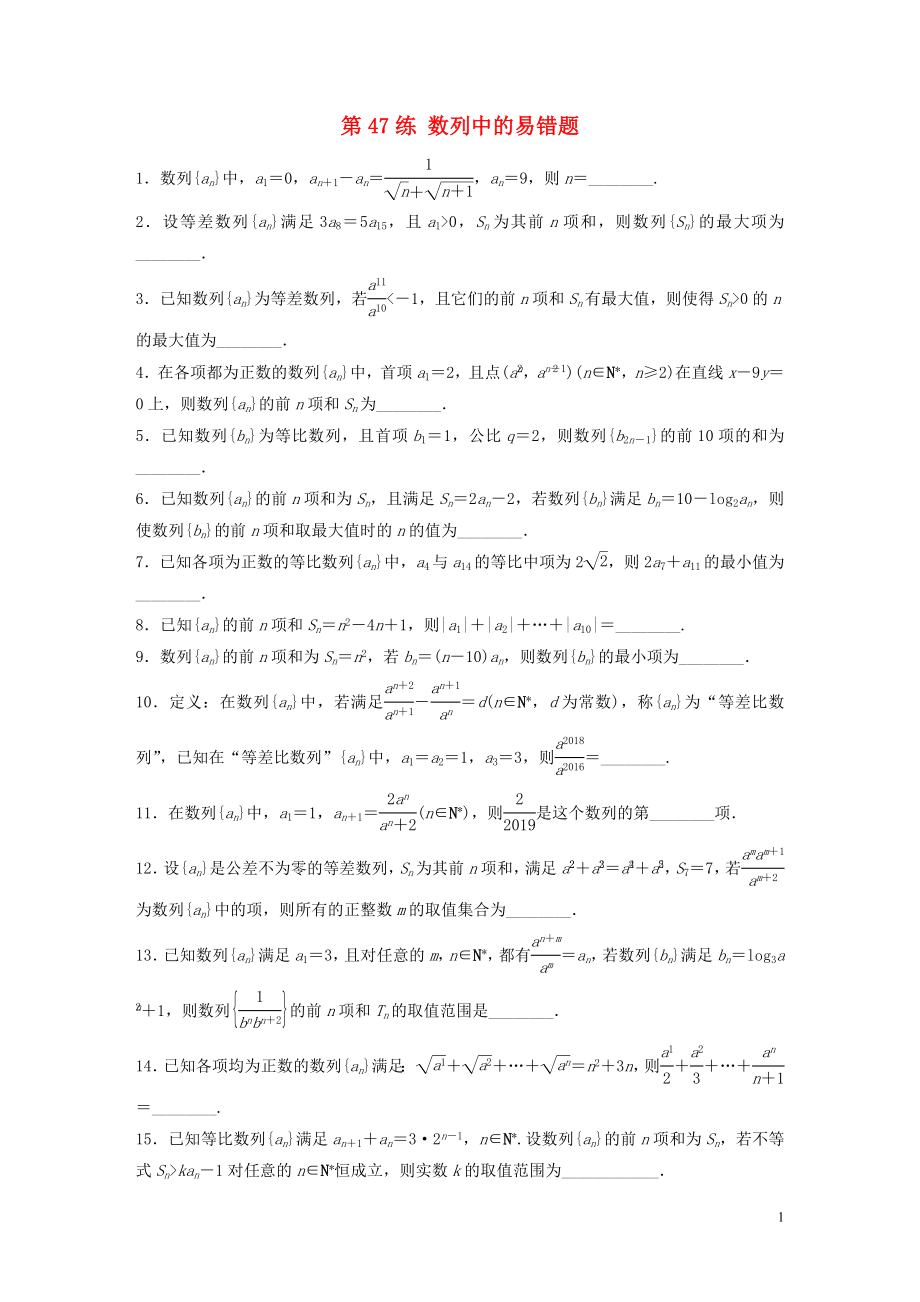 第 47 练 数列中的易错题
1．数列{aₙ}中，a₁＝0，aₙ₊₁－aₙ＝1/(√n＋√(n＋1))，aₙ＝9，则 n＝________.
2．设等差数列{aₙ}满足 3a₈＝5a₁₅，且 a₁>0，Sₙ 为其前 n 项和，则数列{Sₙ}的最大项为
________．
3．已知数列{aₙ}为等差数列，若a11/a10<－1，且它们的前 n 项和 Sₙ 有最大值，则使得 Sₙ>0 的 n
的最大值为________．
4．在各项都为正数的数列{aₙ}中，首项 a₁＝2，且点(a²ₙ，a²ₙ₋₁)(n∈N*，n≥2)在直线 x－9y＝
0 上，则数列{aₙ}的前 n 项和 Sₙ 为________．
5．已知数列{bₙ}为等比数列，且首项 b₁＝1，公比 q＝2，则数列{b₂ₙ₋₁}的前 10 项的和为
________．
6．已知数列{aₙ}的前 n 项和为 Sₙ，且满足 Sₙ＝2aₙ－2，若数列{bₙ}满足 bₙ＝10－log₂aₙ，则
使数列{bₙ}的前 n 项和取最大值时的 n 的值为________．
7．已知各项为正数的等比数列{aₙ}中，a₄ 与 a₁₄ 的等比中项为 2√2，则 2a₇＋a₁₁ 的最小值为
________．
8．已知{aₙ}的前 n 项和 Sₙ＝n²－4n＋1，则|a₁|＋|a₂|＋…＋|a₁₀|＝________.
9．数列{aₙ}的前 n 项和为 Sₙ＝n²，若 bₙ＝(n－10)aₙ，则数列{bₙ}的最小项为________．
10．定义：在数列{aₙ}中，若满足an＋2/an＋1－an＋1/an＝d(n∈N*，d 为常数)，称{aₙ}为“等差比数
列”，已知在“等差比数列”{aₙ}中，a₁＝a₂＝1，a₃＝3，则a2018/a2016＝________.
11．在数列{aₙ}中，a₁＝1，aₙ₊₁＝2an/(an＋2)(n∈N*)，则2/2019是这个数列的第________项．
12．设{aₙ}是公差不为零的等差数列，Sₙ 为其前 n 项和，满足 a²₂＋a²₃＝a²₄＋a²₅，S₇＝7，若amam＋1/am＋2
为数列{aₙ}中的项，则所有的正整数 m 的取值集合为________．
13．已知数列{aₙ}满足 a₁＝3，且对任意的 m，n∈N*，都有an＋m/am＝aₙ，若数列{bₙ}满足 bₙ＝log₃a
²ₙ＋1，则数列{1/bnbn＋2}的前 n 项和 Tₙ 的取值范围是________．
14．已知各项均为正数的数列{aₙ}满足：√a1＋√a2＋…＋√an＝n²＋3n，则a1/2＋a2/3＋…＋an/(n＋1)
＝________.
15．已知等比数列{aₙ}满足 aₙ₊₁＋aₙ＝3·2ⁿ⁻¹，n∈N*.设数列{aₙ}的前 n 项和为 Sₙ，若不等
式 Sₙ>kaₙ－1 对任意的 n∈N*恒成立，则实数 k 的取值范围为____________．
1